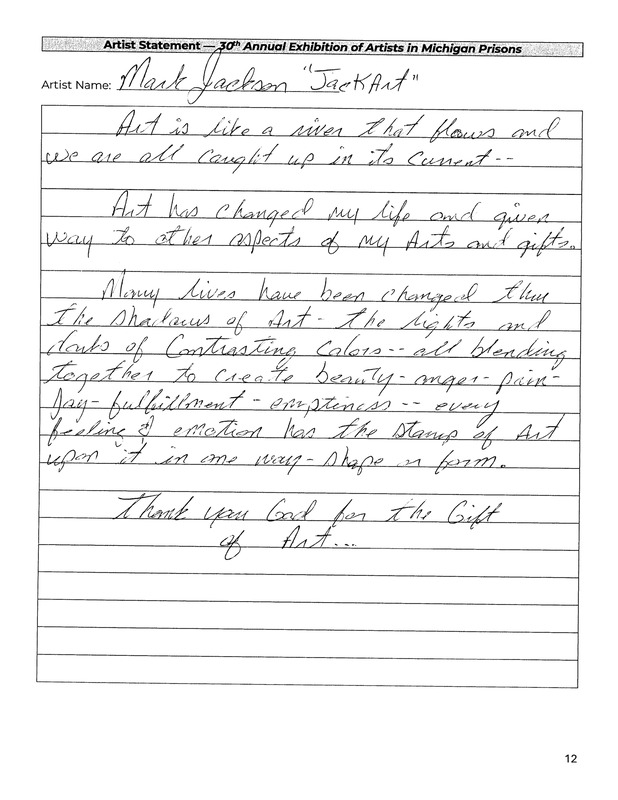 Artist Statement — 30th Annual Exhibition of Artists in Michigan Prisons
Artist Name: Mark Jackson "JackArt"
Art is like a river that flows and
we are all caught up in its current--
Art has changed my life and given
way to other aspects of my Arts and gifts.
Many lives have been changed thru
the shadows of Art- the lights and
darks of Contrasting Colors-- all blending
together to create beauty-anger-pain-
Joy-fulfillment-emptiness-- every
feeling & emotion has the stamp of Art
upon it in one way-shape or form.
Thank you God for the Gift
of Art...
12